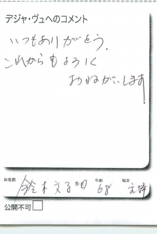 デジャ・ヴュへのコメント
いつもありがとう。
これからもよろしく
おねがいします
お名前 鈴木 年齢 68 職業
公開不可